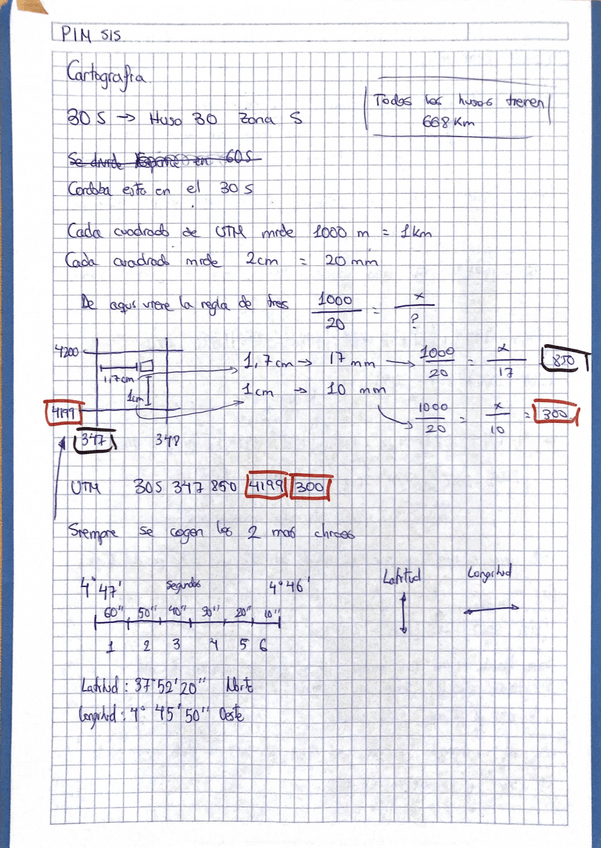 PIM SIS
Cartografia.
Todos los husos tienen
668 Km
30 S → Huso 30 Zona S
Se divide España en 60S
Cordoba esta en el 30 S
Cada cuadrado de UTM mide 1000 m = 1km
Cada cuadrado mide 2cm = 20 mm
De aqui viene la regla de tres 1000/20 = x/?
4200
1,7cm
1cm
4199
347 348
1,7cm → 17 mm → 1000/20 = x/17 850
1cm → 10 mm
1000/20 = x/10 = 300
UTM 30S 347 850 4199 300
Siempre se cogen los 2 mas chicos
4°47' Segundos 4°46'
60" 50" 40" 30" 20" 10"
1 2 3 4 5 6
Latitud Longitud
Latitud : 37°52'20" Norte
Longitud : 4° 45' 50" Oeste